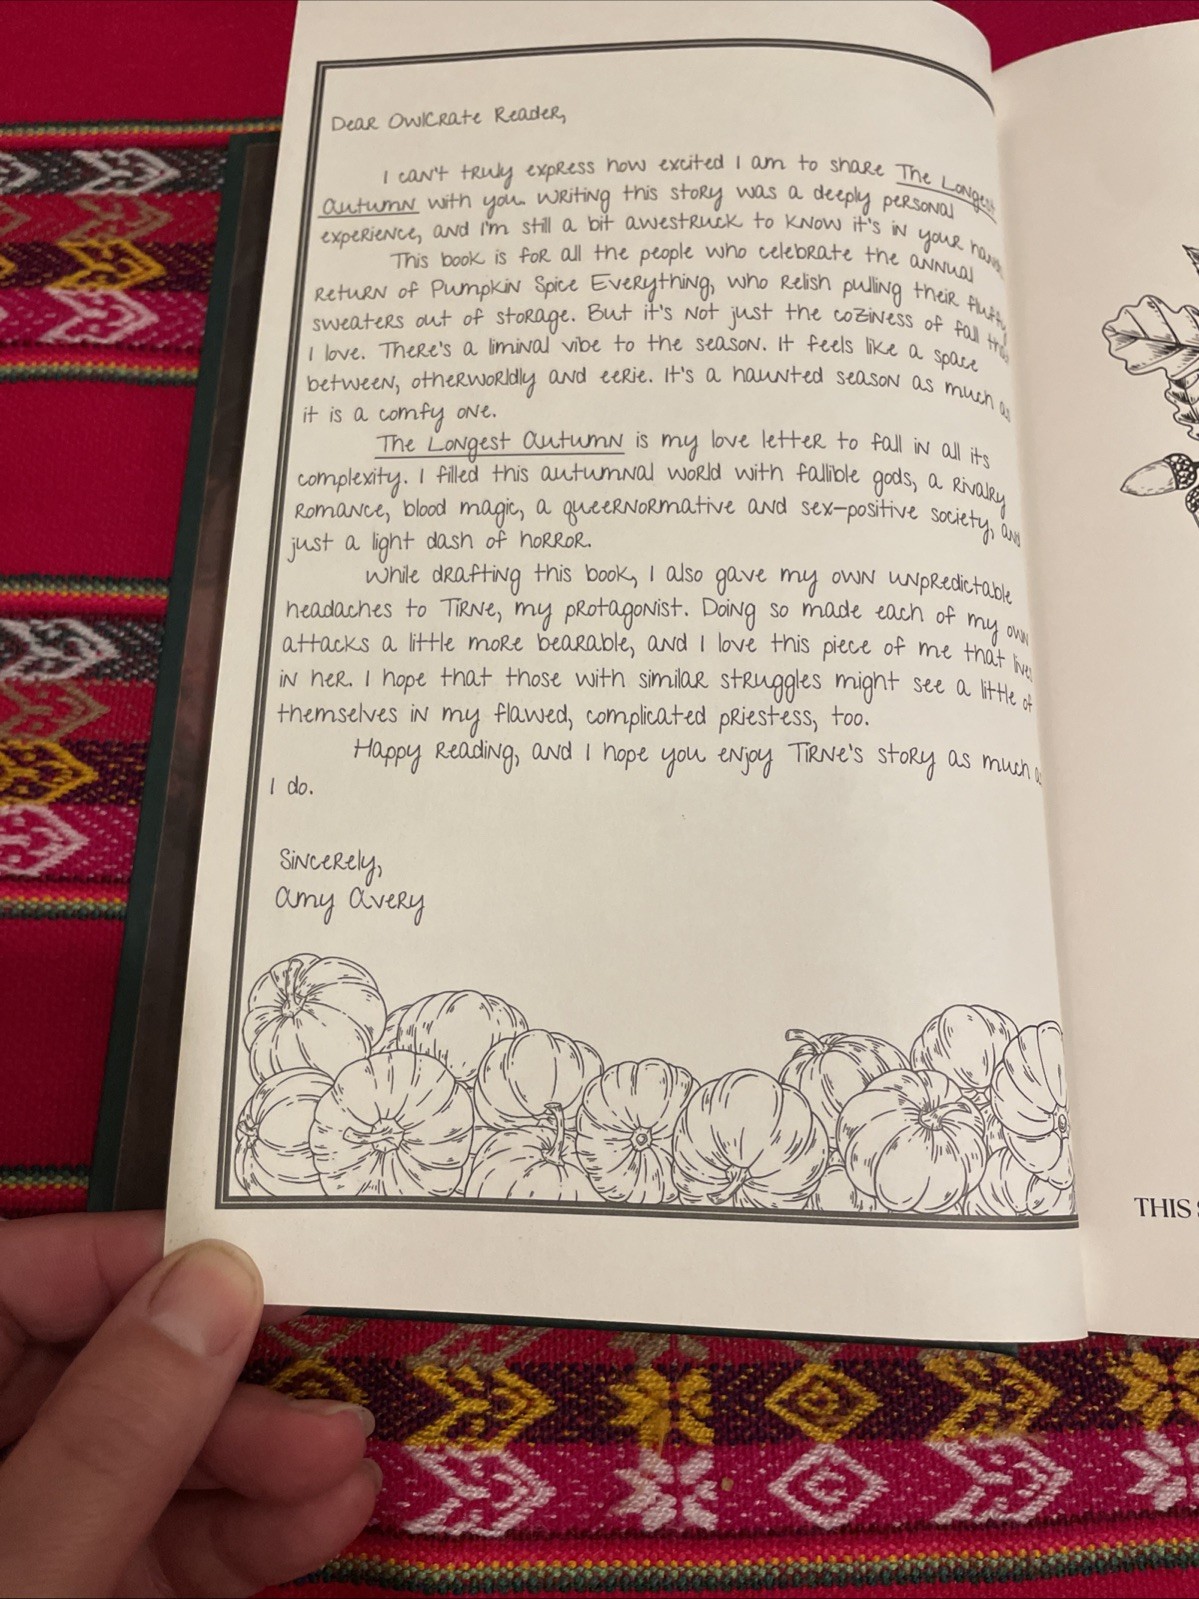 Dear OwlCrate Reader,
I can't truly express how excited I am to share The Longest
Autumn with you. Writing this story was a deeply personal
experience, and I'm still a bit awestruck to know it's in your hands.
This book is for all the people who celebrate the annual
return of Pumpkin Spice Everything, who relish pulling their fluffy
sweaters out of storage. But it's not just the coziness of fall that
I love. There's a liminal vibe to the season. It feels like a space
between, otherworldly and eerie. It's a haunted season as much as
it is a comfy one.
The Longest Autumn is my love letter to fall in all its
complexity. I filled this autumnal world with fallible gods, a rivalry
romance, blood magic, a queernormative and sex-positive society, and
just a light dash of horror.
While drafting this book, I also gave my own unpredictable
headaches to Tirne, my protagonist. Doing so made each of my own
attacks a little more bearable, and I love this piece of me that lives
in her. I hope that those with similar struggles might see a little of
themselves in my flawed, complicated priestess, too.
Happy Reading, and I hope you enjoy Tirne's story as much as
I do.
Sincerely,
Amy Avery
THIS